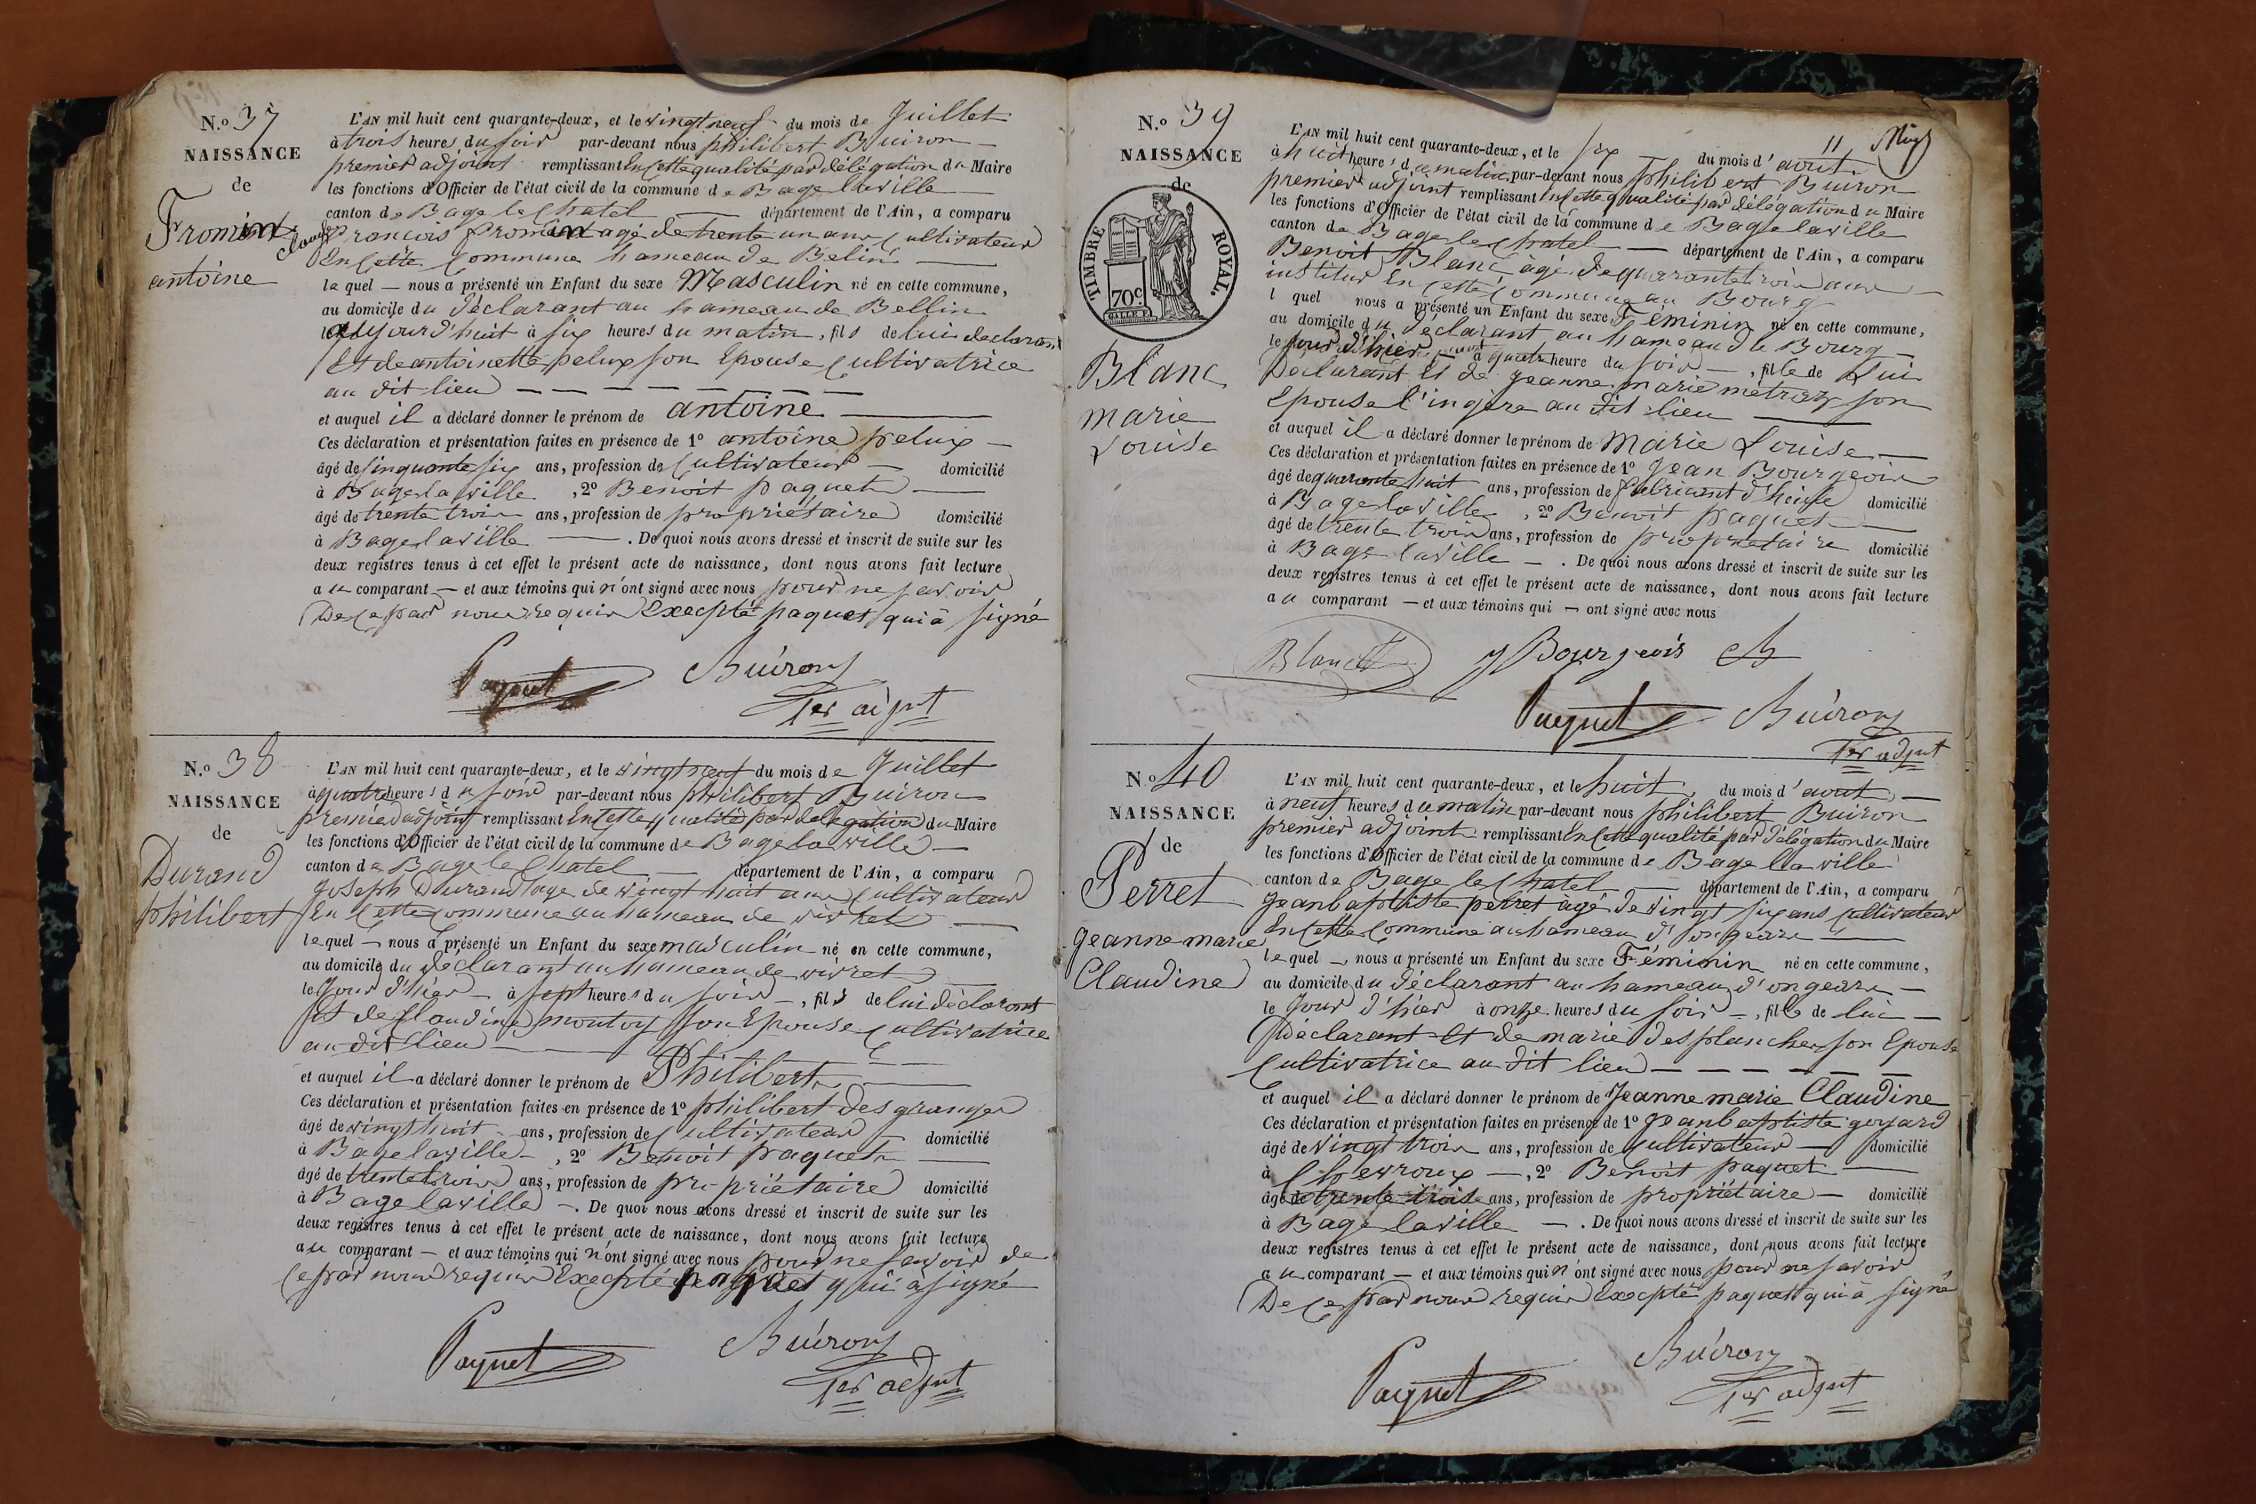 N.º 37
NAISSANCE
de
Fromont
antoine
L'AN mil huit cent quarante-deux, et le vingt neuf du mois de Juillet
à trois heures du soir par-devant nous philibert Buiron
premier adjoint remplissant En cette qualité par délégation du Maire
les fonctions d'Officier de l'état civil de la commune de Bage laville
canton de Bage le Chatel département de l'Ain, a comparu
Claude
françois agé de trente un ans Cultivateur
En Cette Commune hameau de Belin
lequel nous a présenté un Enfant du sexe Masculin né en cette commune,
au domicile du déclarant au hameau de Bellin
aujourd'huit à six heures du matin, fils de lui declarant
Et de antoinette pelux son Epouse Cultivatrice
au dit lieu
et auquel il a déclaré donner le prénom de antoine
Ces déclaration et présentation faites en présence de 1º antoine pelux
âgé de Cinquante six ans, profession de Cultivateur domicilié
à Bage laville, 2º Benoit paquet
âgé de trente trois ans, profession de propriétaire domicilié
à Bage laville. De quoi nous avons dressé et inscrit de suite sur les
deux registres tenus à cet effet le présent acte de naissance, dont nous avons fait lecture
au comparant et aux témoins qui n'ont signé avec nous pour ne savoir
De Ce par nous requis Excepté paquet qui à signé
Paquet Buiron
1er adjnt
N.º 38
NAISSANCE
de
Durand
philibert
L'AN mil huit cent quarante-deux, et le vingt neuf du mois de Juillet
à quatre heures du soir par-devant nous philibert Buiron
premier adjoint remplissant En cette qualité par délégation du Maire
les fonctions d'Officier de l'état civil de la commune de Bage la ville
canton de Bage le Chatel département de l'Ain, a comparu
Joseph Durand age de vingt huit ans Cultivateur
En Cette Commune au hameau de
lequel nous a présenté un Enfant du sexe masculin né en cette commune,
au domicile du déclarant au hameau de
le Jour d'hier à sept heures du soir, fils de lui déclarant
Et de Claudine montoy son Epouse Cultivatrice
au dit lieu
et auquel il a déclaré donner le prénom de Philibert
Ces déclaration et présentation faites en présence de 1º philibert desgranges
âgé de vingt huit ans, profession de Cultivateur domicilié
à Bage laville, 2º Benoit paquet
âgé de trente trois ans, profession de propriétaire domicilié
à Bage laville. De quoi nous avons dressé et inscrit de suite sur les
deux registres tenus à cet effet le présent acte de naissance, dont nous avons fait lecture
au comparant et aux témoins qui n'ont signé avec nous pour ne savoir de
Ce par nous requis Excepté paquet qui à signé
Paquet Buiron
1er adjnt
11
N.º 39
NAISSANCE
de
TIMBRE ROYAL.
70c
Blanc
marie
Louise
L'AN mil huit cent quarante-deux, et le six du mois d'aout
à huit heures du matin par-devant nous philibert Buiron
premier adjoint remplissant En cette qualité par délégation du Maire
les fonctions d'Officier de l'état civil de la commune de Bage laville
canton de Bage le Chatel département de l'Ain, a comparu
Benoit Blanc âgé de quarante trois ans
En cette Commune au Bourg
l quel nous a présenté un Enfant du sexe Féminin né en cette commune,
au domicile du déclarant au hameau du Bourg
le Jour d'hier à quatre heure du soir, fille de Lui
Déclarant Et de Jeanne marie son
Epouse l'ingere au dit lieu
et auquel il a déclaré donner le prénom de Marie Louise
Ces déclaration et présentation faites en présence de 1º Jean Bourgeois
âgé de quarante huit ans, profession de fabricant d'huile domicilié
à Bage laville, 2º Benoit paquet
âgé de trente trois ans, profession de propriétaire domicilié
à Bage laville. De quoi nous avons dressé et inscrit de suite sur les
deux registres tenus à cet effet le présent acte de naissance, dont nous avons fait lecture
au comparant et aux témoins qui ont signé avec nous
Blanc J Bourgeois
Paquet Buiron
1er adjnt
N.º 40
NAISSANCE
de
Perret
Jeanne marie
Claudine
L'AN mil huit cent quarante-deux, et le huit du mois d'aout
à neuf heures du matin par-devant nous philibert Buiron
premier adjoint remplissant En cette qualité par délégation du Maire
les fonctions d'Officier de l'état civil de la commune de Bage la ville
canton de Bage le Chatel département de l'Ain, a comparu
Jean baptiste perret âgé de vingt six ans Cultivateur
En Cette Commune au hameau
lequel nous a présenté un Enfant du sexe Féminin né en cette commune,
au domicile du déclarant au hameau d'ongeare
le Jour d'hier à onze heures du soir, fille de lui
Déclarant Et de marie desplanches son Epouse
Cultivatrice au dit lieu
et auquel il a déclaré donner le prénom de Jeanne marie Claudine
Ces déclaration et présentation faites en présence de 1º Jean baptiste goyard
âgé de vingt trois ans, profession de Cultivateur domicilié
à Chevroux, 2º Benoit paquet
âgé de trente trois ans, profession de propriétaire domicilié
à Bage laville. De quoi nous avons dressé et inscrit de suite sur les
deux registres tenus à cet effet le présent acte de naissance, dont nous avons fait lecture
au comparant et aux témoins qui n'ont signé avec nous pour ne savoir
De Ce par nous requis Excepté paquet qui à signé
Paquet Buiron
1er adjnt